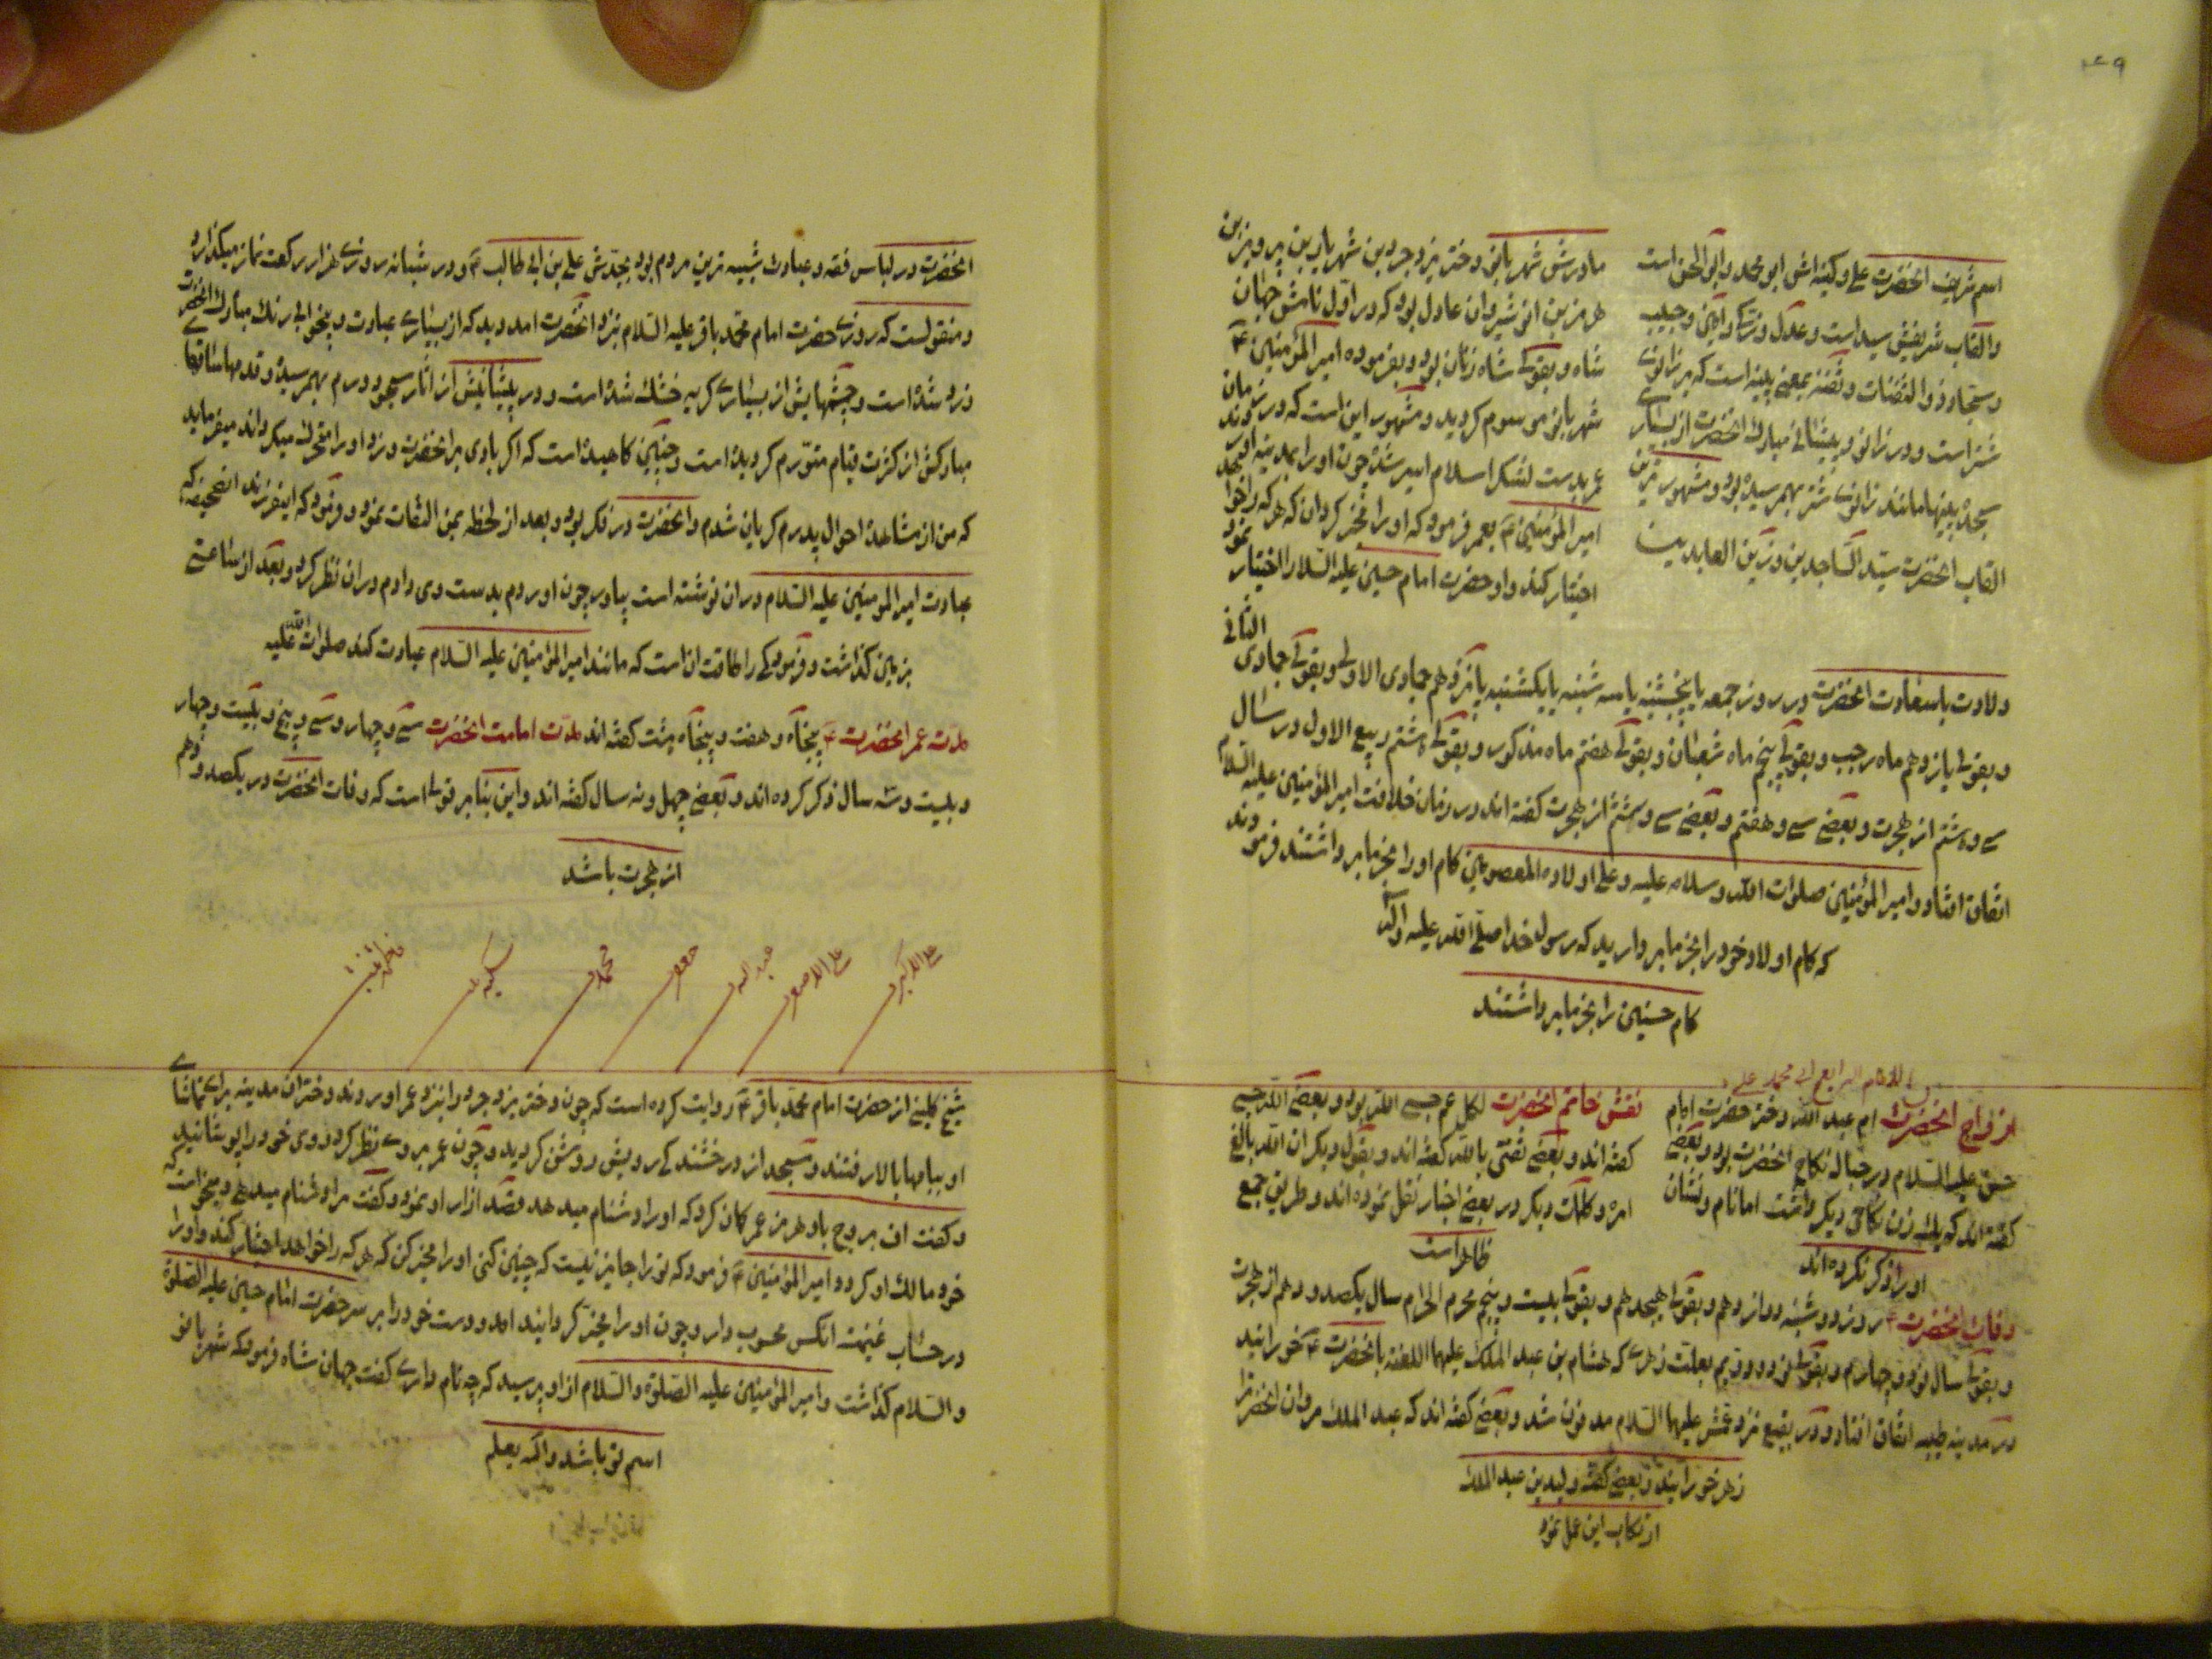 ۴۹
اسم شریف انحضرت علی و کنیه اش ابو محمد و ابی الحسن است
والقاب شریفش سید است و عدل و زکی و امین و حبیب
و سجاد و ذو الثفنات و ثفنه بمعنی پینه است که بر زانوی
شتر است و در زانو و پیشانی مبارک انحضرت از بسیاری
سجده پینها مانند زانوی شتر بهمرسیده بود و مشهورترین
القاب انحضرت سید الساجدین و زین العابدین
مادرش شهربانو دختر یزدجرد بن شهریار بن پرویز بن
هرمز بن انوشیروان عادل بود که در اول نامش جهان
شاه و بقولی شاه زنان بود و بفرموده امیر المؤمنین ع
شهربانو موسوم کردید و مشهور این است که در زمان
عمر بدست لشکر اسلام اسیر شد چون او را بمدینه اوردند
امیر المؤمنین ع بعمر فرمود که او را مخیر کردان که هرکه را خواهد
اختیار کند و او حضرت امام حسین علیه السلام را اختیار نمود
ولادت باسعادت انحضرت در روز جمعه یا پنجشنبه یا سه شنبه یا یکشنبه پانزدهم جمادی الاولی و بقولی جمادی الثانی
و بقولی یازدهم ماه رجب و بقولی پنجم ماه شعبان و بقولی هفتم ماه مذکور و بقولی هشتم ربیع الاول در سال
سی و هشتم از هجرت و بعضی سی و هفتم و بعضی سی و ششم از هجرت کفته اند در زمان خلافت امیر المؤمنین علیه السلام
اتفاق افتاد و امیر المؤمنین صلوات الله و سلامه علیه و علی اولاده المعصومین کام او را بخرما برداشتند فرمودند
که کام اولاد خود را بخرما بردارید که رسول خدا صلی الله علیه و آله
کام حسنین را بخرما برداشتند
للامام الرابع ابی محمد علی
ازواج انحضرت ام عبد الله دختر حضرت امام
حسن علیه السلام در حباله نکاح انحضرت بود و بعضی
کفته اند که یک زن نکاحی دیکر داشت اما نام و نشان
او را ذکر نکرده اند
نقش خاتم انحضرت لکل غم حسبی الله بود و بعضی الله حسبی
کفته اند و بعضی ثقتی بالله کفته اند و بقول دیکر ان الله بالغ
امره و کلمات دیکر در بعض اخبار نقل نموده اند و طریق جمع
ظاهر است
وفات انحضرت ع روز دوشنبه دوازدهم و بقولی هیجدهم و بقولی بیست و پنجم محرم الحرام سال یکصد و دهم از هجرت
و بقولی سال نود و چهارم و بقولی نود و دویم بعلت زهری که هشام بن عبد الملک علیهما اللعنه بانحضرت ع خورانید
در مدینه طیبه اتفاق افتاد و در بقیع نزد عمش علیهما السلام مدفون شد و بعضی کفته اند که عبد الملک مروان انحضرترا
زهر خورانید و بعضی کفته ولید بن عبد الملک
ارتکاب این عمل نمود
انحضرت در لباس فقه و عبادت شبیه ترین مردم بود بجدش علی بن ابی طالب ع و در شبانه روزی هزار رکعت نماز میکذارد
و منقولست که روزی حضرت امام محمد باقر علیه السلام نزد انحضرت امد دید که از بسیاری عبادت و بیخوابی رنک مبارک انحضرت
زرد شده است و چشمهایش از بسیاری کریه خشک شده است و در پیشانیش از اثار سجود ورم بهمرسیده و قدمها و ساقهای
مبارکش از کثرت قیام متورم کردیده است و چنان کاهیده است که اکر بادی بر انحضرت وزد او را متحرک میکرداند میفرماید
که من از مشاهده احوال پدرم کریان شدم و انحضرت در فکر بود و بعد از لحظه بمن التفات نمود و فرمود که ایفرزند انصحیفه که
عبادت امیر المؤمنین علیه السلام در ان نوشته است بیاور چون اوردم بدست وی دادم در ان نظر کرد و بعد از ساعتی
بزمین کذاشت و فرمود که را طاقت انست که مانند امیر المؤمنین علیه السلام عبادت کند صلوات الله علیه
مدت عمر انحضرت ع پنجاه و هفت و پنجاه و هشت کفته اند مدت امامت انحضرت سی و چهار و سی و پنج و بیست و چهار
و بیست و سه سال ذکر کرده اند و بعضی چهل و نه سال کفته اند و این بنابر قولی است که وفات انحضرت در یکصد و دهم
از هجرت باشد
علی الاکبر علی الاصغر عبد الله جعفر محمد سکینه فاطمه
شیخ کلینی از حضرت امام محمد باقر ع روایت کرده است که چون دختر یزدجرد را نزد عمر اوردند دختران مدینه برای تماشای
او ببامها بالا رفتند و مسجد از درخشندکی رویش روشن کردید و چون عمر بروی نظر کرد روی خود را پوشانید
و کفت اف بیروج باد هرمز عمر کمان کرد که او را دشنام میدهد قصد ازار او نمود و کفت مرا دشنام میدهی و میخواست که
خود مالک او کردد امیر المؤمنین ع فرمود که تو را جایز نیست که چنین کنی او را مخیر کن که هرکه را خواهد اختیار کند و او را
در حساب غنیمت انکس محسوب دار و چون او را مخیر کردانیدند امد و دست خود را بر سر حضرت امام حسین علیه الصلوة
والسلام کذاشت و امیر المؤمنین علیه الصلوة والسلام از او پرسید که چه نام داری کفت جهان شاه فرمود که شهربانو
اسم تو باشد والله یعلم